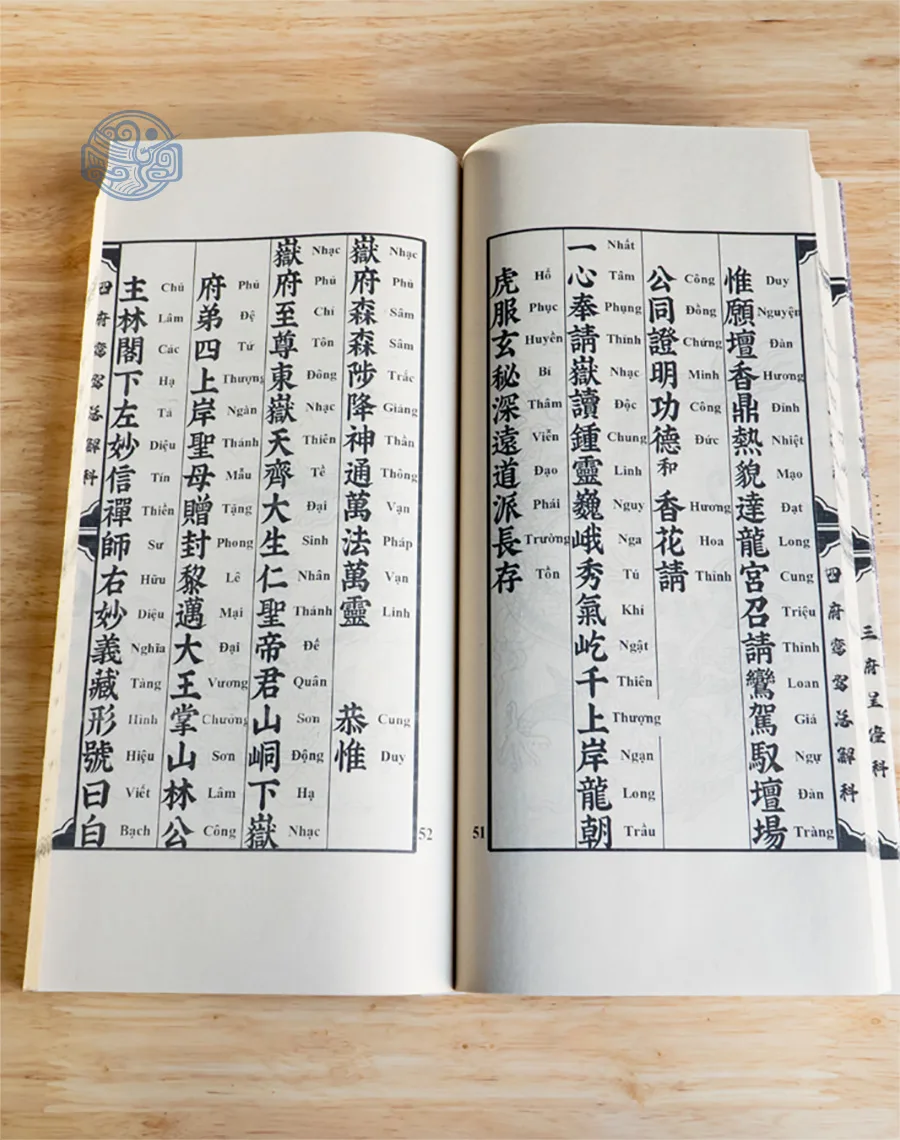 三府呈僮科
四府鸞駕落解科
惟願壇香鼎熱貌達龍宮召請鸞駕馭壇場
Duy Nguyện Đàn Hương Đỉnh Nhiệt Mạo Đạt Long Cung Triệu Thỉnh Loan Giá Ngự Đàn Tràng
公同證明功德和香花請
Công Đồng Chứng Minh Công Đức Hương Hoa Thỉnh
一心奉請嶽讀鍾靈巍峨秀氣屹千上岸龍朝
Nhất Tâm Phụng Thỉnh Nhạc Độc Chung Linh Nguy Nga Tú Khí Ngật Thiên Thượng Ngạn Long Trầu
虎服玄秘深遠道派長存
Hổ Phục Huyền Bí Thâm Viễn Đạo Phái Trường Tồn
51
52
嶽府森森陟降神通萬法萬靈 恭惟
Nhạc Phủ Sâm Sâm Trắc Giáng Thần Thông Vạn Pháp Vạn Linh Cung Duy
嶽府至尊東嶽天齊大生仁聖帝君山峒下嶽
Nhạc Phủ Chí Tôn Đông Nhạc Thiên Tề Đại Sinh Nhân Thánh Đế Quân Sơn Động Hạ Nhạc
府弟四上岸聖母贈封黎邁大王掌山林公
Phủ Đệ Tứ Thượng Ngàn Thánh Mẫu Tặng Phong Lê Mại Đại Vương Chưởng Sơn Lâm Công
主林閣下左妙信禪師右妙義藏形號曰白
Chủ Lâm Các Hạ Tả Diệu Tín Thiền Sư Hữu Diệu Nghĩa Tàng Hình Hiệu Viết Bạch
四府鸞駕落解科